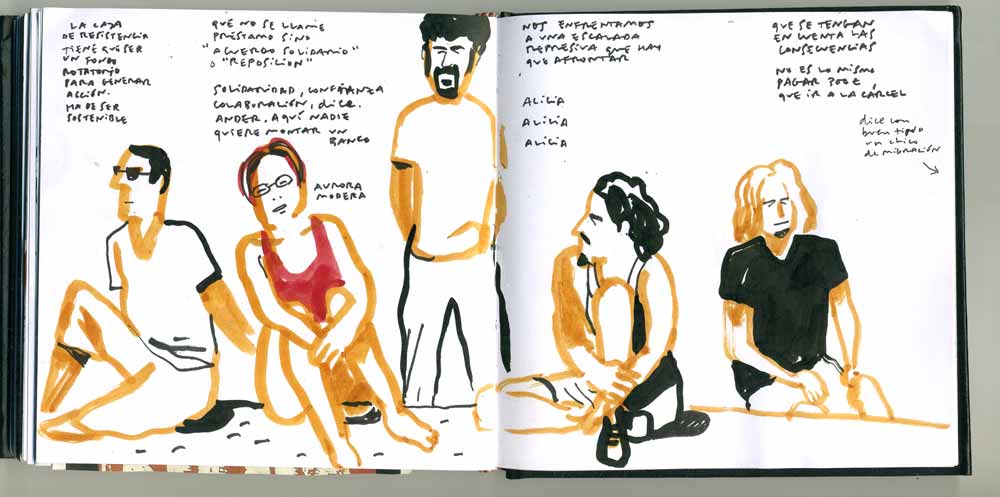 LA CAJA
DE RESISTENCIA
TIENE QUE SER
UN FONDO
ROTATORIO
PARA GENERAR
ACCIÓN.
HA DE SER
SOSTENIBLE
QUE NO SE LLAME
PRÉSTAMO SINO
"ACUERDO SOLIDARIO"
O "REPOSICION"
SOLIDARIDAD, CONFIANZA
COLABORACIÓN, dice.
ANDER. AQUÍ NADIE
QUIERE MONTAR UN
BANCO
AURORA
MODERA
NOS ENFRENTAMOS
A UNA ESCALADA
REPRESIVA QUE HAY
QUE AFRONTAR
ALICIA
ALICIA
ALICIA
QUE SE TENGAN
EN CUENTA LAS
CONSECUENCIAS
NO ES LO MISMO
PAGAR 300€
QUE IR A LA CÁRCEL
dice con
buen tipo
un chico
de migración